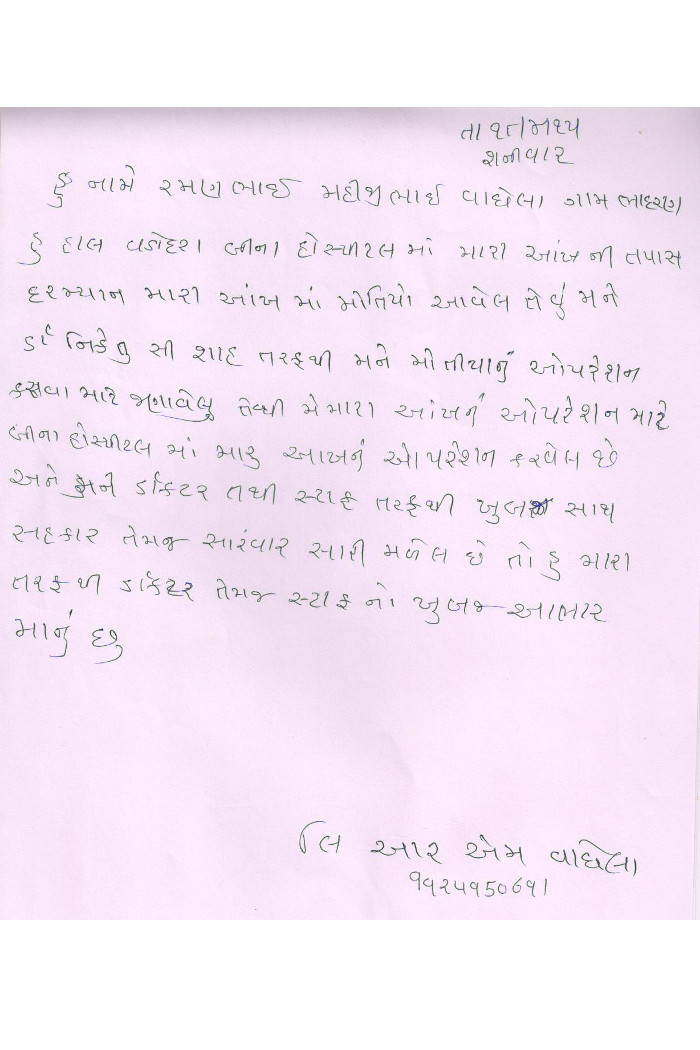 શનીવાર
હું નામે રમણભાઈ મહીજીભાઈ વાઘેલા ગામ ભાદરણ
હુ હાલ વડોદરા બીના હોસ્પીટલ માં મારી આંખ ની તપાસ
દરમ્યાન મારી આંખ માં મોતિયો આવેલ તેવું મને
ર્ડા નિકેતુ સી શાહ તરફથી મને મોતીયાનું ઓપરેશન
કરાવવા માટે જણાવેલુ તેથી મે મારા આંખનું ઓપરેશન માટે
બીના હોસ્પીટલ માં મારૂ આખનું ઓપરેશન કરવેલ છે
અને મને ડૉકટર તથી સ્ટાફ તરફથી ખુબજ સાથ
સહકાર તેમજ સારંવાર સારી મળેલ છે તો હુ મારા
તરફ થી ડૉકટર તેમજ સ્ટાફ નો ખુબજ આભાર
માનું છુ
લિ આર એમ વાઘેલા